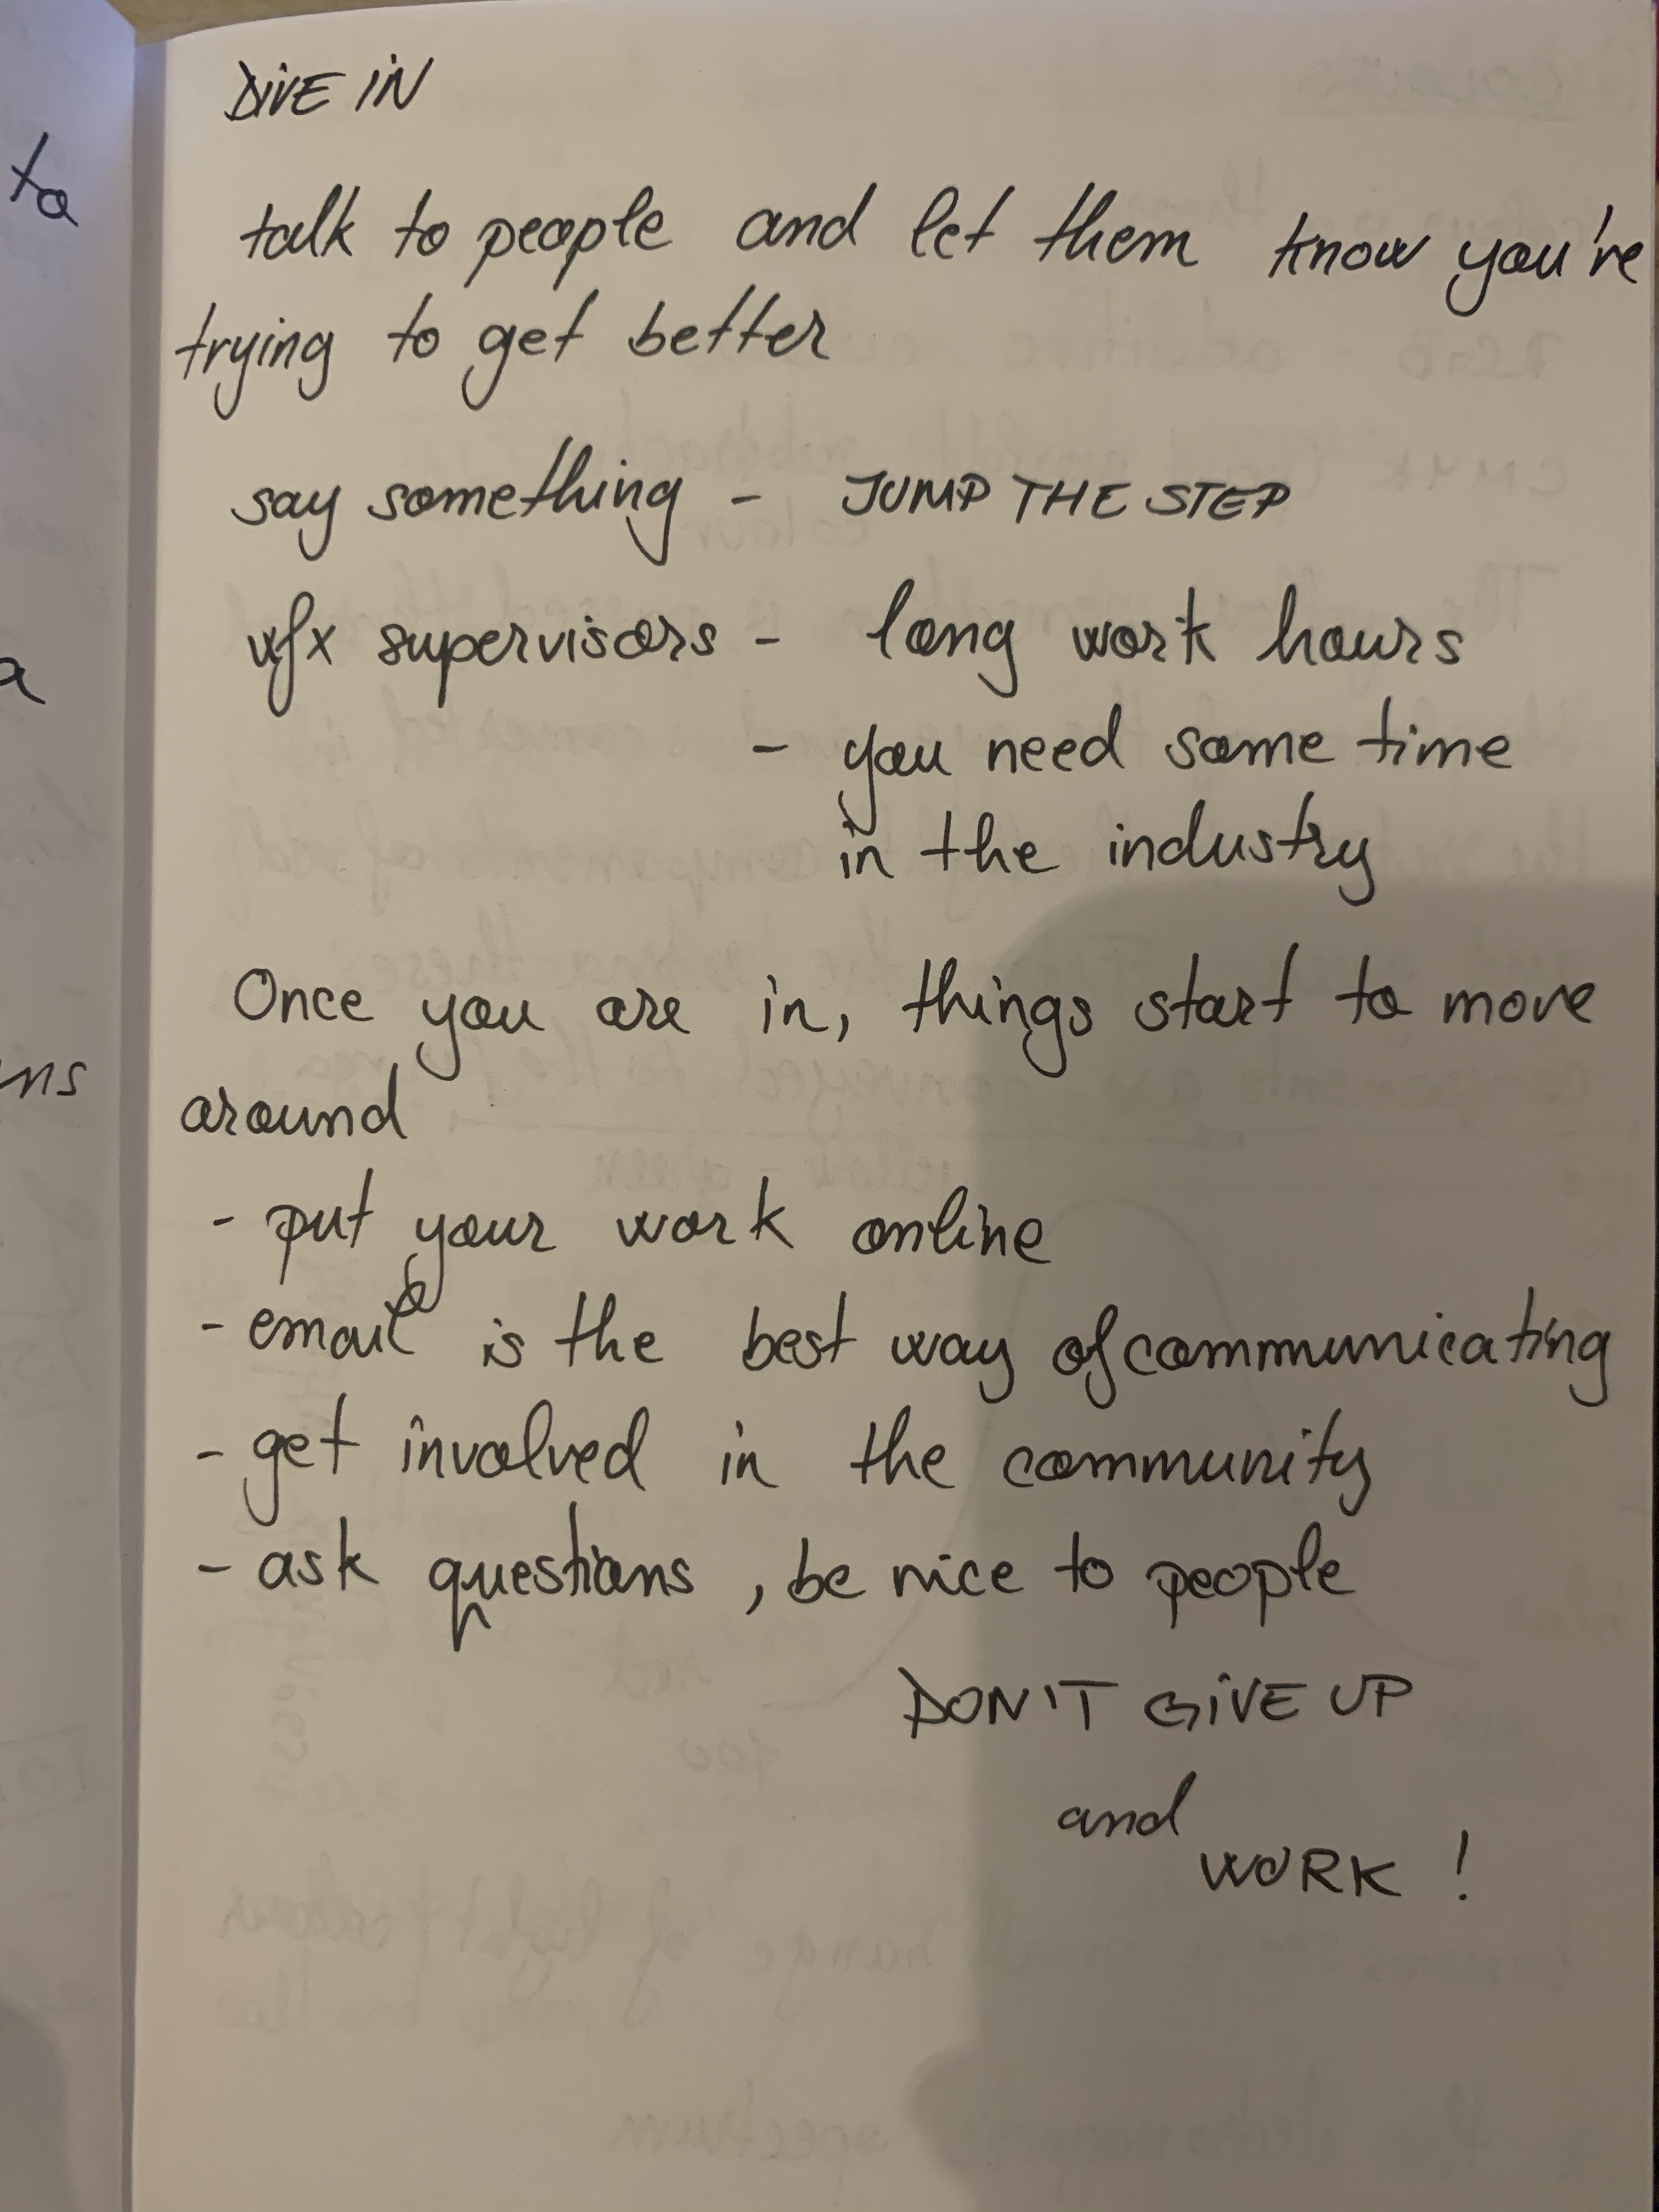 DIVE IN
talk to people and let them know you're
trying to get better
say something - JUMP THE STEP
vfx supervisors - long work hours
- you need some time
in the industry
Once you are in, things start to move
around
- put your work online
- email is the best way of communicating
- get involved in the community
- ask questions, be nice to people
DON'T GIVE UP
and
WORK !
to
a
ns